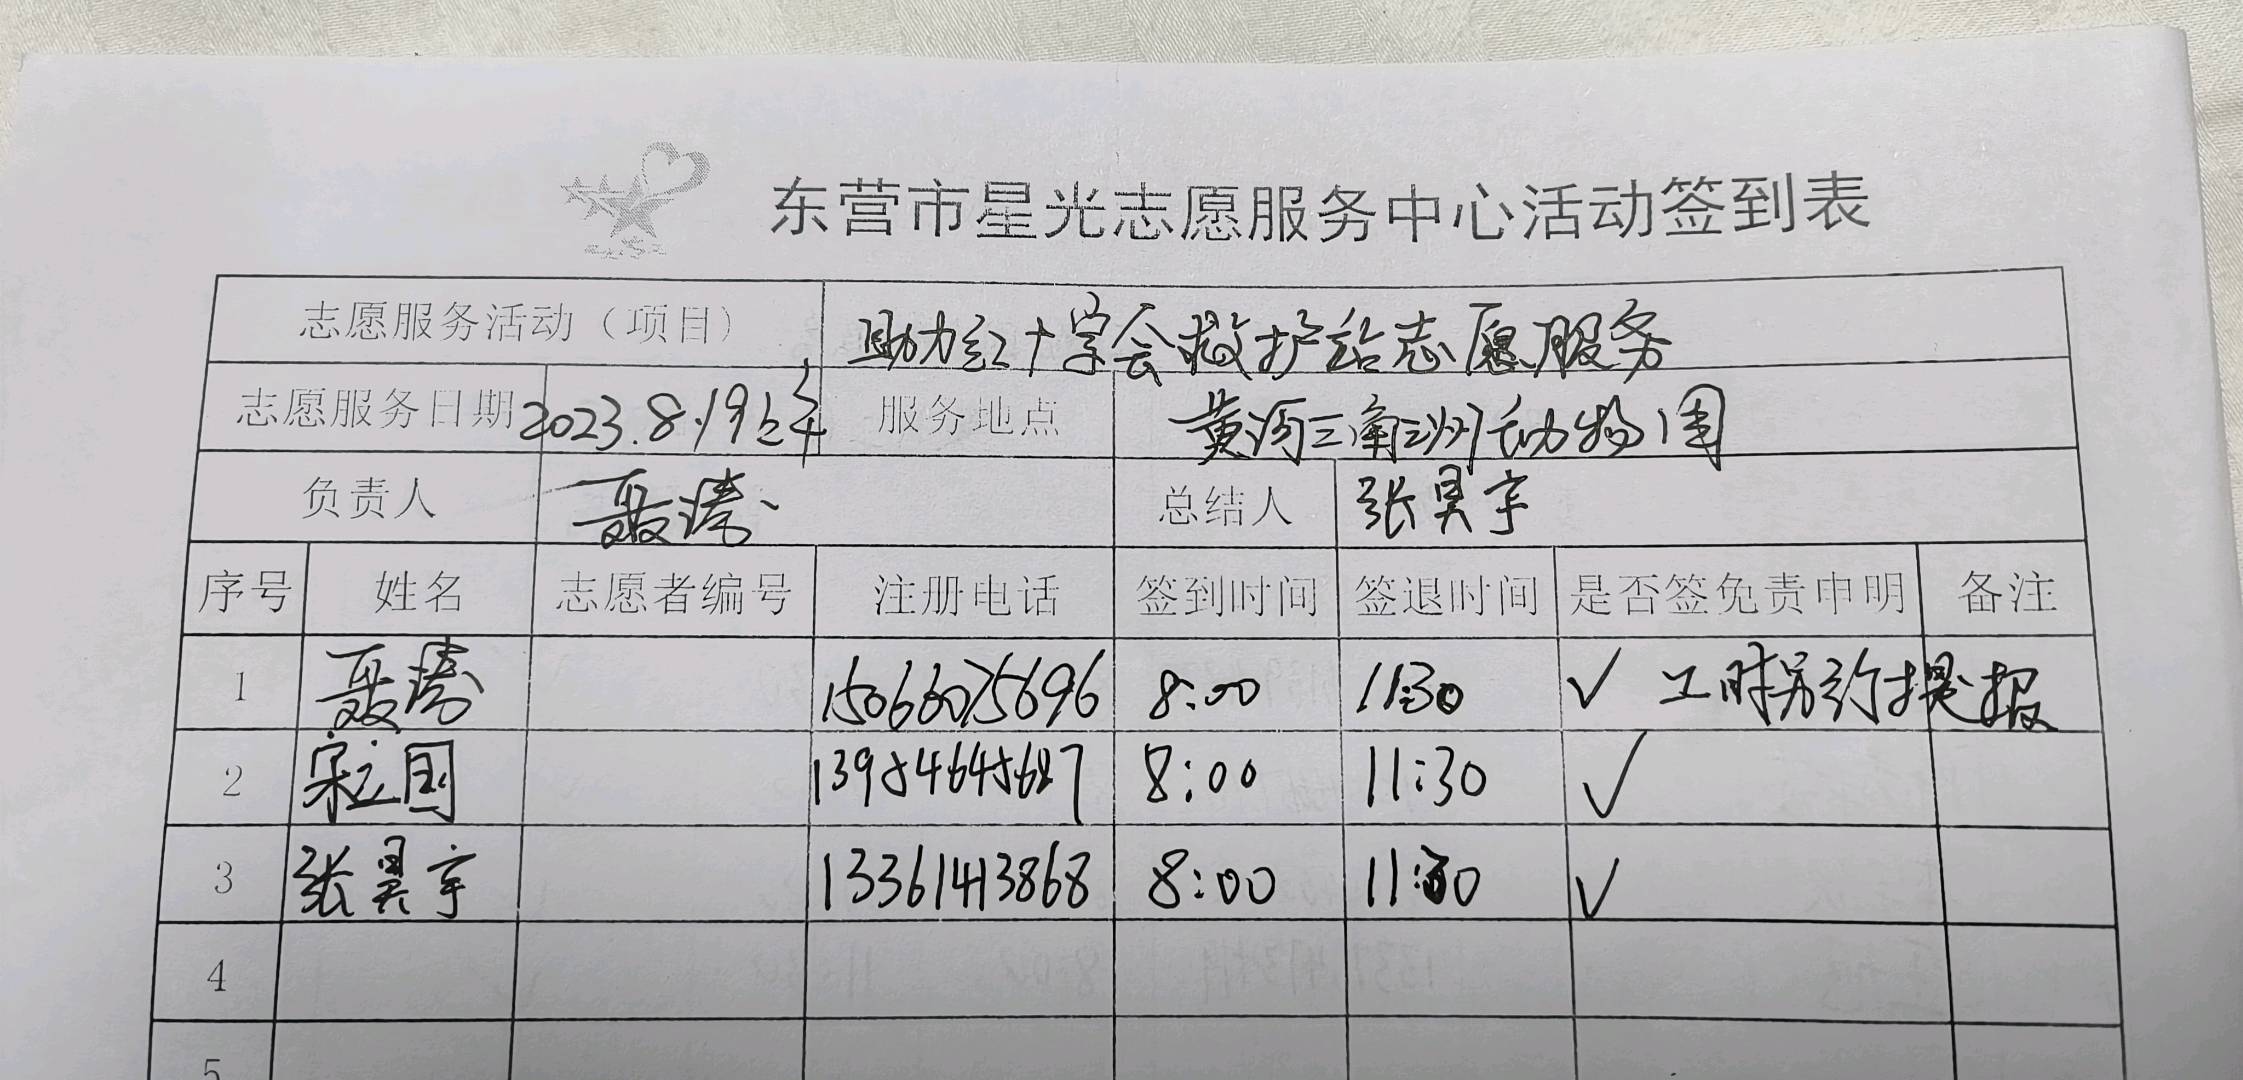 东营市星光志愿服务中心活动签到表
志愿服务活动（项目） 助力红十字会救护站志愿服务
志愿服务日期 2023.8.19上午 服务地点 黄河三角洲动物园
负责人 聂涛 总结人 张昊宇
序号 姓名 志愿者编号 注册电话 签到时间 签退时间 是否签免责申明 备注
1 聂涛 15066075696 8:00 11:30 ✓ 工时另行提报
2 宋立国 13954645687 8:00 11:30 ✓
3 张昊宇 13361413868 8:00 11:30 ✓
4
5